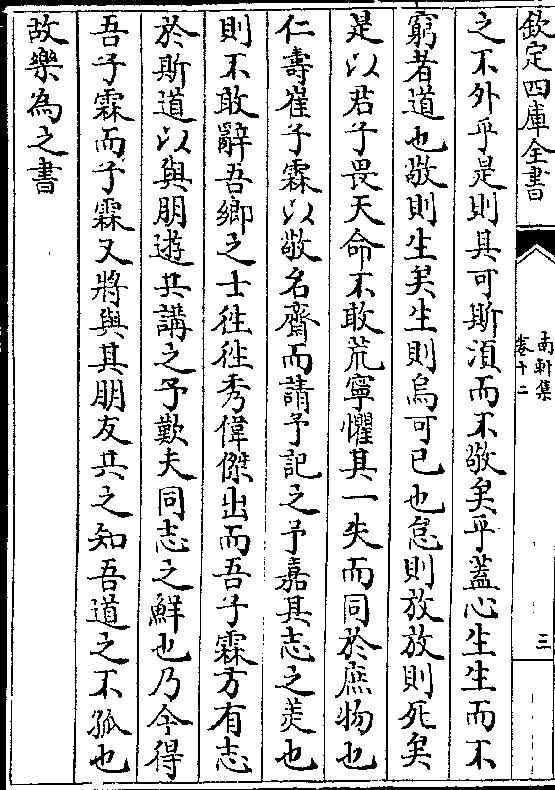 欽定四庫全書
南軒集
卷十二
三
之不外乎是則其可斯須而不敬矣乎蓋心生生而不
窮者道也敬則生矣生則烏可已也怠則放放則死矣
是以君子畏天命不敢荒寧懼其一失而同於庶物也
仁壽崔子霖以敬名齋而請予記之予嘉其志之美也
則不敢辭吾鄉之士往往秀偉傑出而吾子霖方有志
於斯道以與朋遊共講之予歎夫同志之鮮也乃今得
吾子霖而子霖又將與其朋友共之知吾道之不孤也
故樂為之書